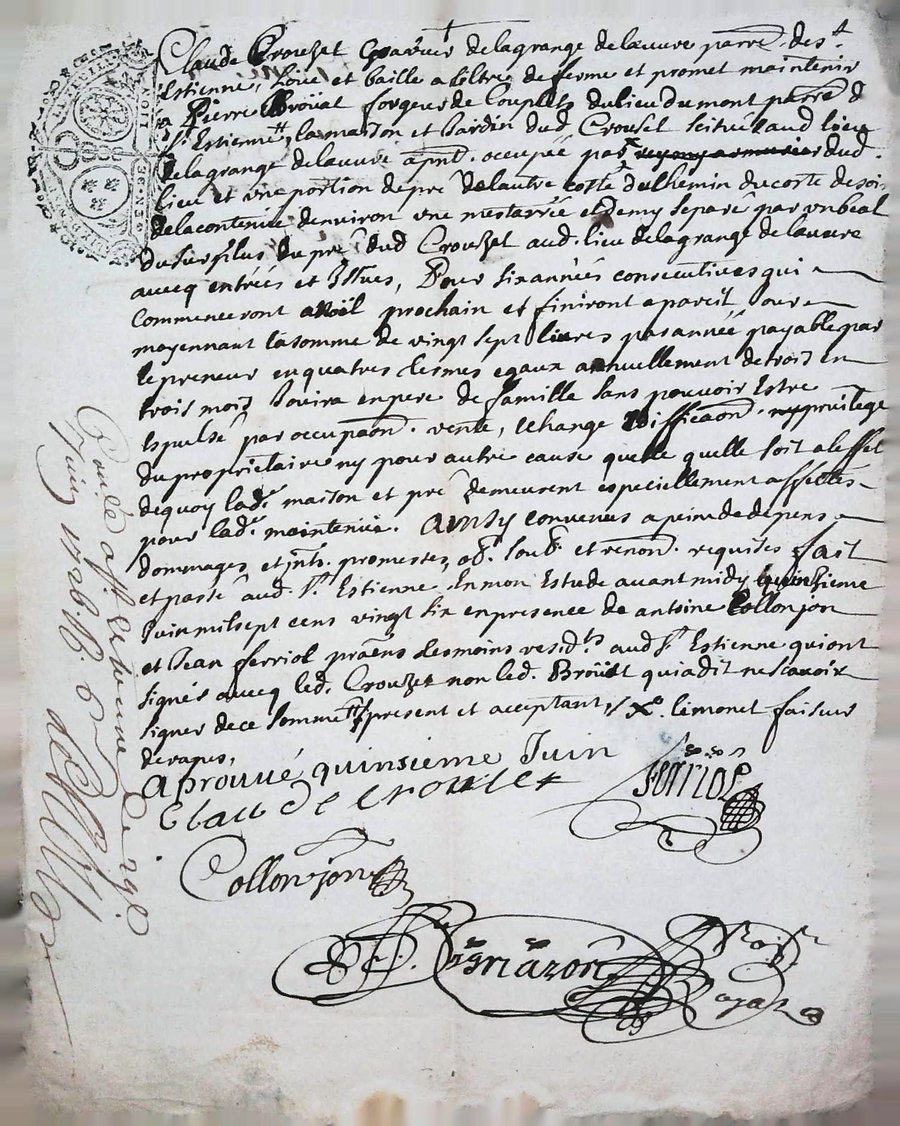 Claude Crouzet de lagrange de laeuvre parre. de St
Estienne, Loue et baille a tiltre de ferme et promet maintenir
a Pierre Broüat forgeur de Couplets du lieu du mont parre d
St Estienne, la maison et Jardin dud. Crouset scituée aud. lieu
de lagrange de lauvre apnt. occupée par dud.
lieu et une portion de pré de lautre costé du chemin du costé de soir
de la contenue denviron une mestarée et demy separé par un beal
du surplus du pré dud Crouzet aud. lieu de lagrange de lauvre
avecq entrées et Issues, Pour six années consecutives qui
commenceront a Noël prochain et finiront a pareil Jour
moyennant la somme de vingt sept livres par année payable par
le preneur en quatres termes egaux annuellement de trois en
trois mois Jouira en pere de famille sans pouvoir Estre
Espulsé par occupaon. vente, Echange Edifficaon. ny privilege
du proprietaire ny pour autre cause quelle quelle soit a leffet
dequoy lade. maison et pré demeurent especiellement affectés
pour lade. maintenüe. Ainsy convenus a peine de depens
dommages et jnts. promesses, ob. soub. et renon. requises fait
et passé aud. St. Estienne En mon Estude avant midy quinzieme
Juin mil sept cens vingt six en presence de antoine Collonjon
et Jean ferriol praens tesmoins residts aud St Estienne qui ont
signés avecq led. Crouzet non led. Broüat qui a dit ne scavoir
signer de ce sommé present et acceptant, X lemonet faiseur
de
aprouvé quinsieme Juin
Claude crouset
ferriol
Collonjon
Royal
Conlé a St Estienne le
Juin 1726